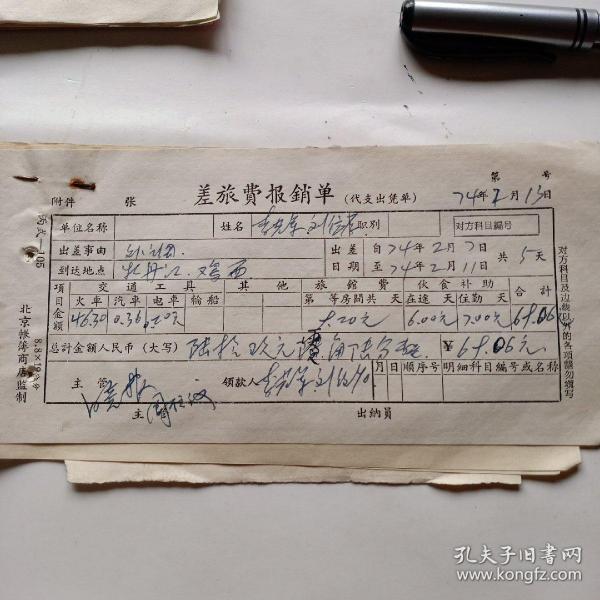 附件 张 差旅費报銷单 (代支出凭单) 第 号
74年2月13日
单位名称 姓名 职别 对方科目編号
出差事由 出差 自74年2月7日 共5天
到达地点 牡丹江.鸡西 日期 至74年2月11日
項目 交通工具 其他 旅館費 伙食补助 合計
火車 汽車 电車 輪船 第 等房間共 天 在途 天 住勤 天
金額 46.30 0.36 9.20元 6.00元 7.00元 69.06
总計金額人民币(大写) 陆拾玖元零角陆分整 ¥69.06元
主管 領款人 月 日 順序号 明細科目編号或名称
主 出納員
丙式—105
8.8×19公分
北京帳簿商店监制
对方科目及边线以外的各項請勿填写
孔夫子旧书网
www.kongfz.com